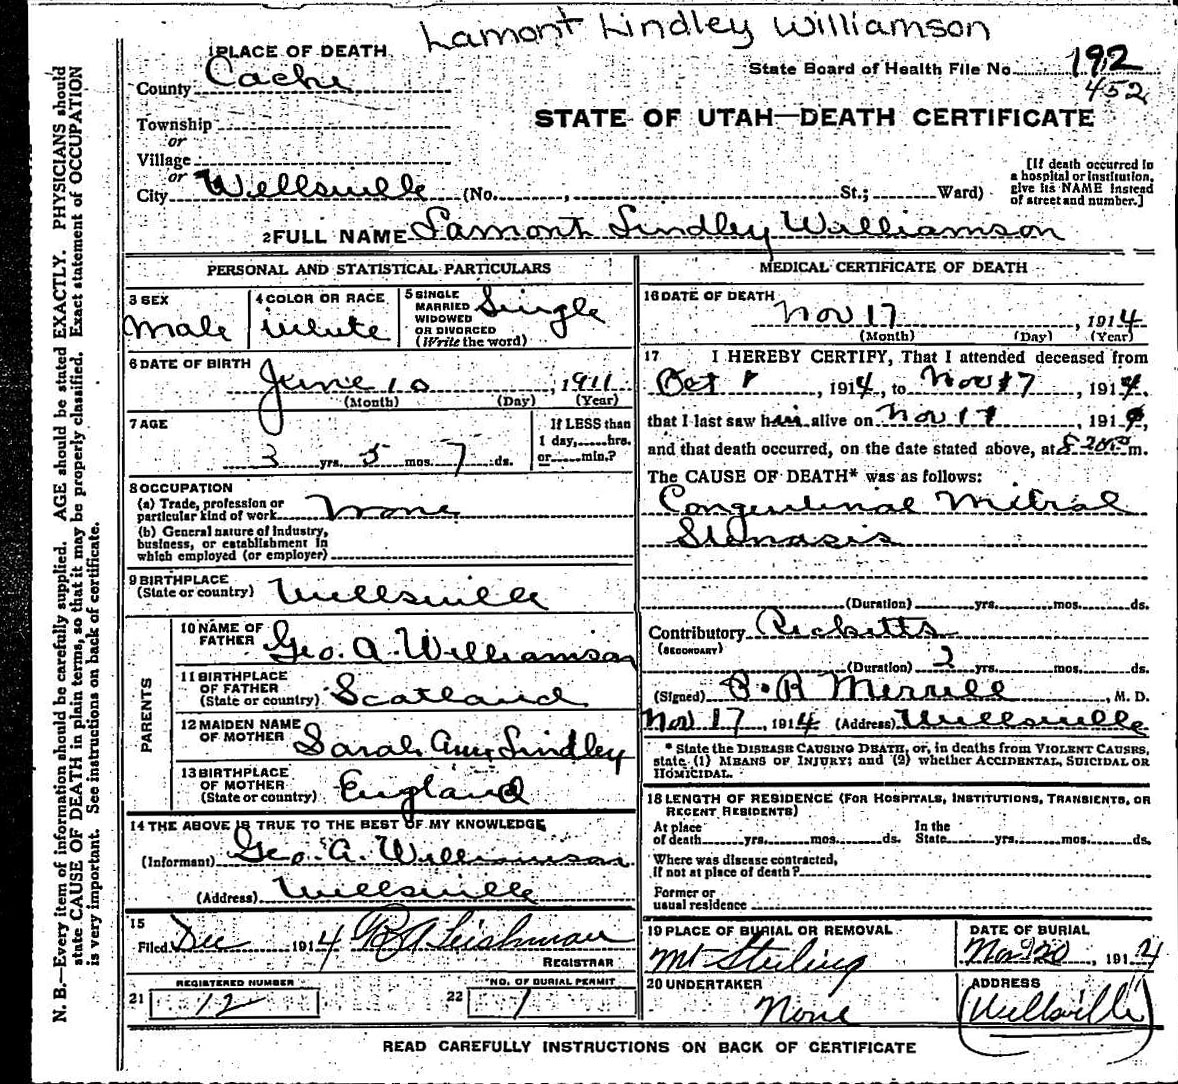 Lamont Lindley Williamson
1 PLACE OF DEATH
State Board of Health File No. 192
452
County Cache
STATE OF UTAH—DEATH CERTIFICATE
Township
or
Village
or
City Wellsville (No. , St.; Ward)
[If death occurred in
a hospital or institution,
give its NAME instead
of street and number.]
2 FULL NAME Lamont Lindley Williamson
PERSONAL AND STATISTICAL PARTICULARS
3 SEX
Male
4 COLOR OR RACE
White
5 SINGLE
MARRIED
WIDOWED
OR DIVORCED
(Write the word)
Single
6 DATE OF BIRTH
June 10, 1911
(Month) (Day) (Year)
7 AGE
3 yrs. 5 mos. 7 ds.
If LESS than
1 day, hrs.
or min.?
8 OCCUPATION
(a) Trade, profession or
particular kind of work None
(b) General nature of industry,
business, or establishment in
which employed (or employer)
9 BIRTHPLACE
(State or country) Wellsville
PARENTS
10 NAME OF
FATHER Geo. A. Williamson
11 BIRTHPLACE
OF FATHER
(State or country) Scotland
12 MAIDEN NAME
OF MOTHER Sarah Ann Lindley
13 BIRTHPLACE
OF MOTHER
(State or country) England
14 THE ABOVE IS TRUE TO THE BEST OF MY KNOWLEDGE
(Informant) Geo. A. Williamson
(Address) Wellsville
15
Filed Dec 1914 R A Leishman
REGISTRAR
REGISTERED NUMBER
21 12
NO. OF BURIAL PERMIT
22 1
MEDICAL CERTIFICATE OF DEATH
16 DATE OF DEATH
Nov 17, 1914
(Month) (Day) (Year)
17 I HEREBY CERTIFY, That I attended deceased from
Oct 1, 1914, to Nov 17, 1914,
that I last saw him alive on Nov 17, 1914,
and that death occurred, on the date stated above, at m.
The CAUSE OF DEATH* was as follows:
Congentinal Mitral
Stenasis
(Duration) yrs. mos. ds.
Contributory Ricketts
(SECONDARY)
(Duration) 3 yrs. mos. ds.
(Signed) Merrill, M. D.
Nov 17, 1914 (Address) Wellsville
* State the DISEASE CAUSING DEATH, or, in deaths from VIOLENT CAUSES,
state (1) MEANS OF INJURY; and (2) whether ACCIDENTAL, SUICIDAL OR
HOMICIDAL.
18 LENGTH OF RESIDENCE (FOR HOSPITALS, INSTITUTIONS, TRANSIENTS, OR
RECENT RESIDENTS)
At place
of death yrs. mos. ds.
In the
State yrs. mos. ds.
Where was disease contracted,
if not at place of death?
Former or
usual residence
19 PLACE OF BURIAL OR REMOVAL
Mt Sterling
DATE OF BURIAL
Nov 20, 1914
20 UNDERTAKER
None
ADDRESS
Wellsville
READ CAREFULLY INSTRUCTIONS ON BACK OF CERTIFICATE
N. B.—Every item of information should be carefully supplied. AGE should be stated EXACTLY. PHYSICIANS should
state CAUSE OF DEATH in plain terms, so that it may be properly classified. Exact statement of OCCUPATION
is very important. See instructions on back of certificate.